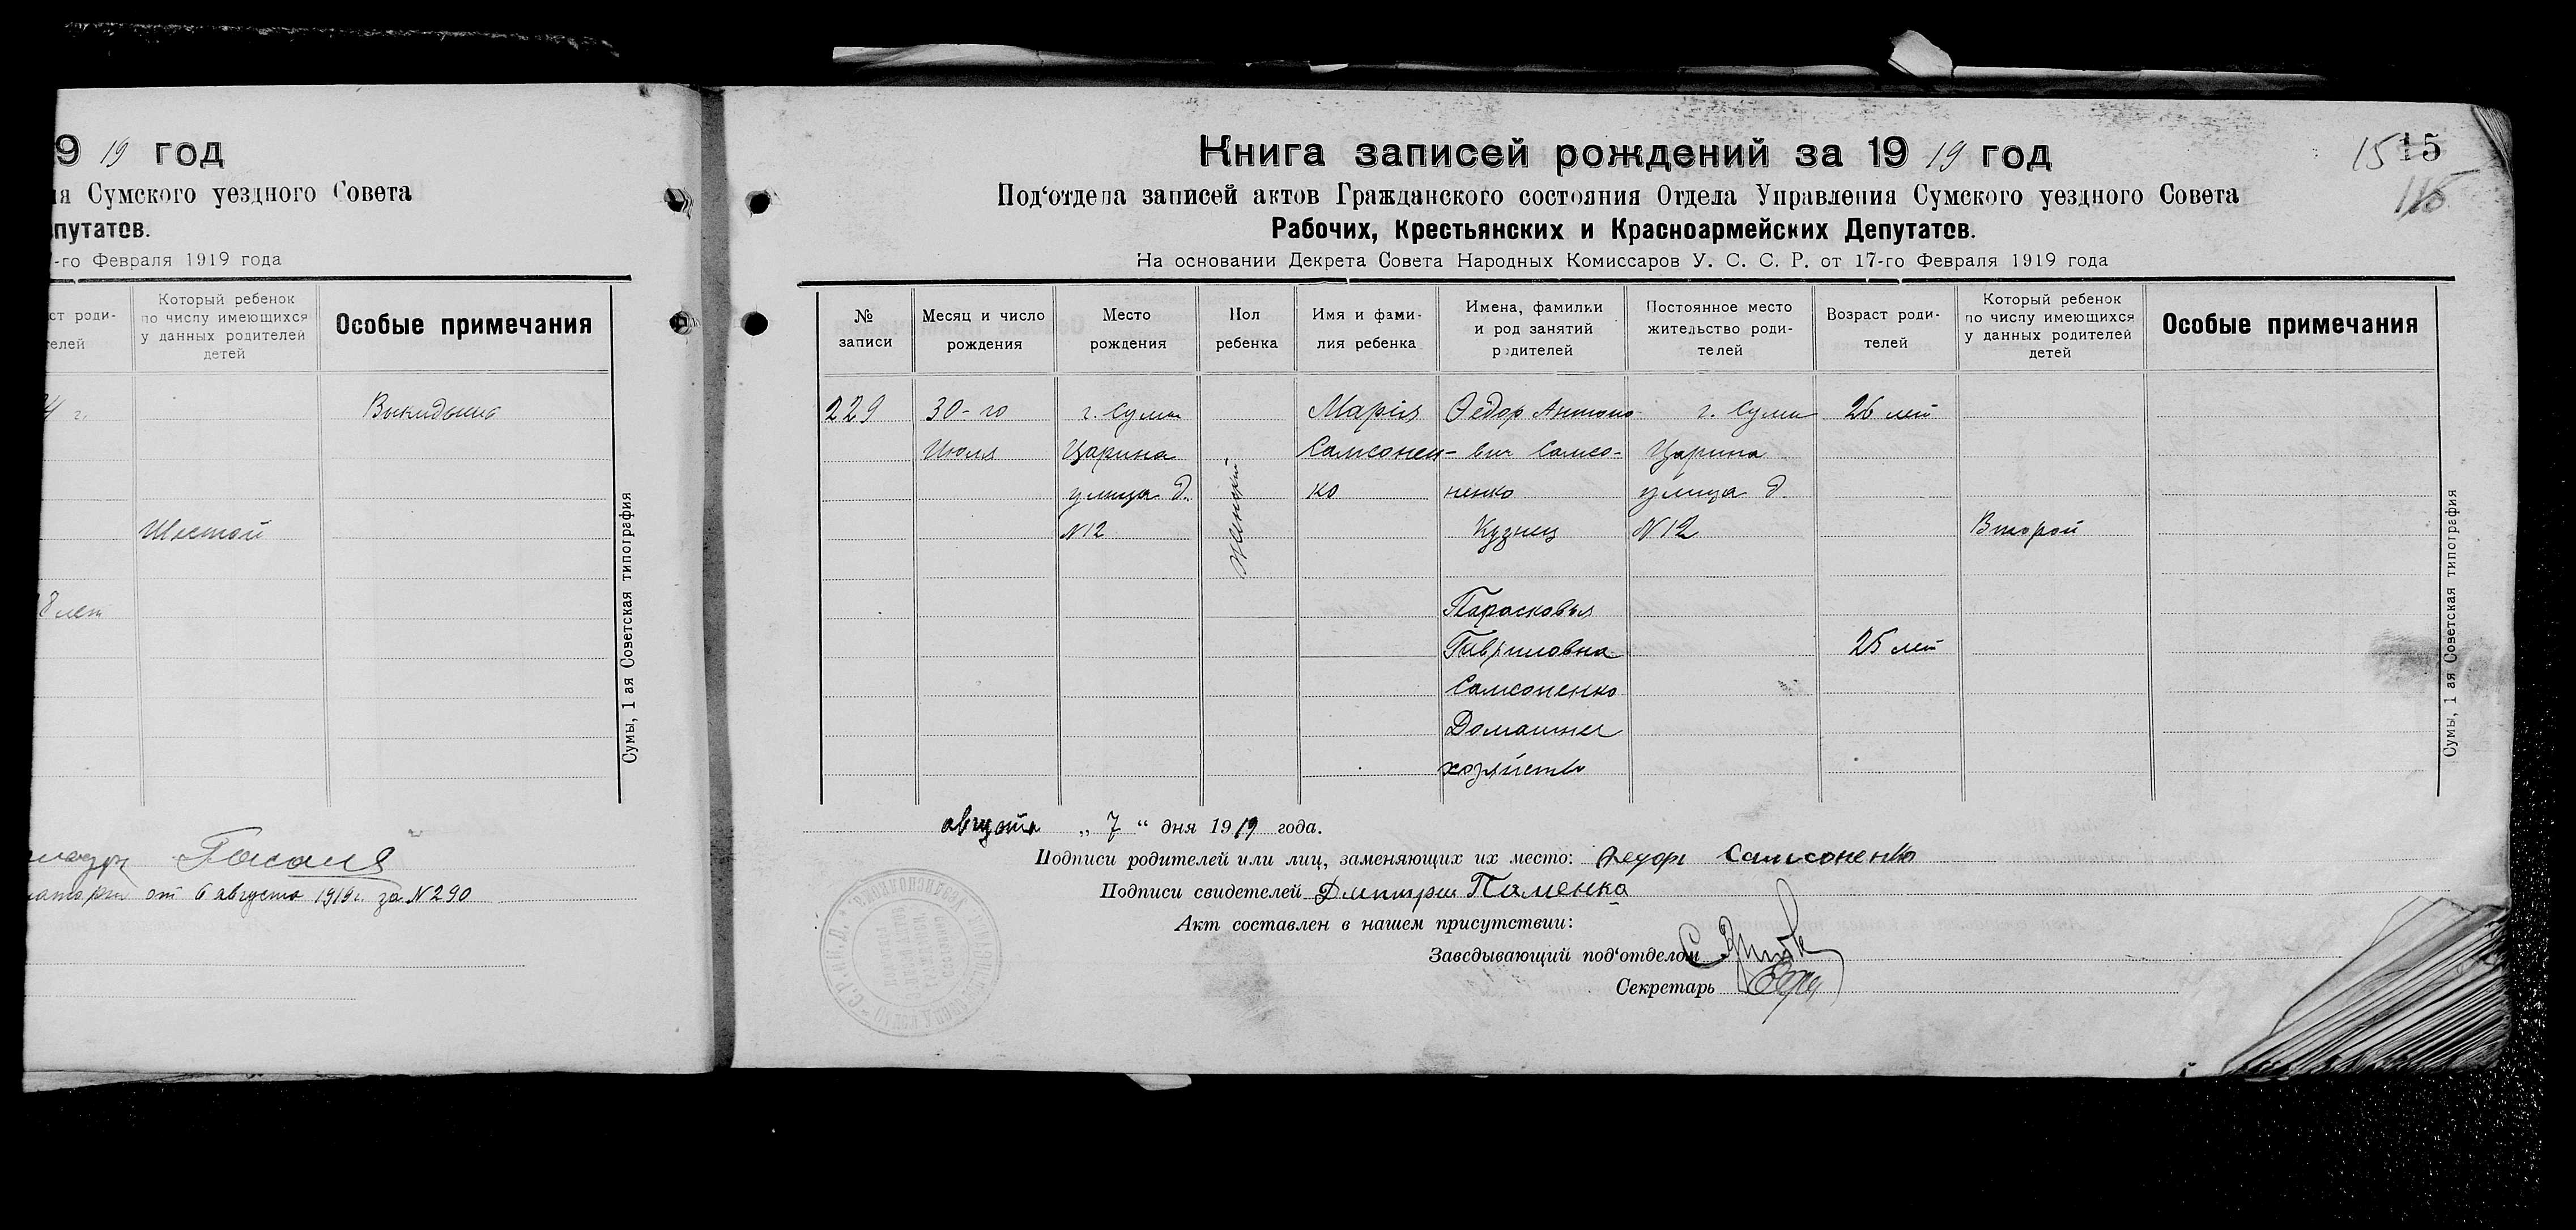 9 19 год
ия Сумского уездного Совета
путатов.
-го Февраля 1919 года
ст роди-
телей
Который ребенок
по числу имеющихся
у данных родителей
детей
Особые примечания
4 г.
Выкидыш
Шестой
8 лет
от 6 августа 1919 г. за № 290
Сумы, 1 ая Советская типография
Книга записей рождений за 19 19 год
15 15
115
Под‘отдела записей актов Гражданского состояния Отдела Управления Сумского уездного Совета
Рабочих, Крестьянских и Красноармейских Депутатов.
На основании Декрета Совета Народных Комиссаров У. С. С. Р. от 17-го Февраля 1919 года
№
записи
Месяц и число
рождения
Место
рождения
Пол
ребенка
Имя и фами-
лия ребенка
Имена, фамилии
и род занятий
родителей
Постоянное место
жительство роди-
телей
Возраст роди-
телей
Который ребенок
по числу имеющихся
у данных родителей
детей
Особые примечания
229
30-го
Июля
г. Сумы
Царина
улица д.
№12
Женский
Марія
Самсонен-
ко
Федор Антоно-
вич Самсо-
ненко
Кузнец
Парасковья
Гавриловна
Самсоненко
Домашнее
хозяйство
г. Сумы
Царина
улица д.
№12
26 лет
25 лет
Второй
Сумы, 1 ая Советская типография
августа „ 7 “ дня 1919 года.
Подписи родителей или лиц, заменяющих их место: Федор Самсоненко
Подписи свидетелей Дмитрий Паменко
Акт составлен в нашем присутствии:
Заведывающий под‘отделом
Секретарь